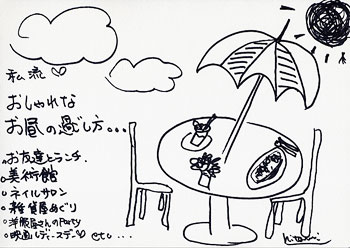 私流♡
おしゃれな
お昼の過ごし方...
・お友達とランチ.
・美術館
・ネイルサロン
・雑貨屋めぐり
・洋服屋さんのParty
・映画レディースデー♡ etc...
hitomi